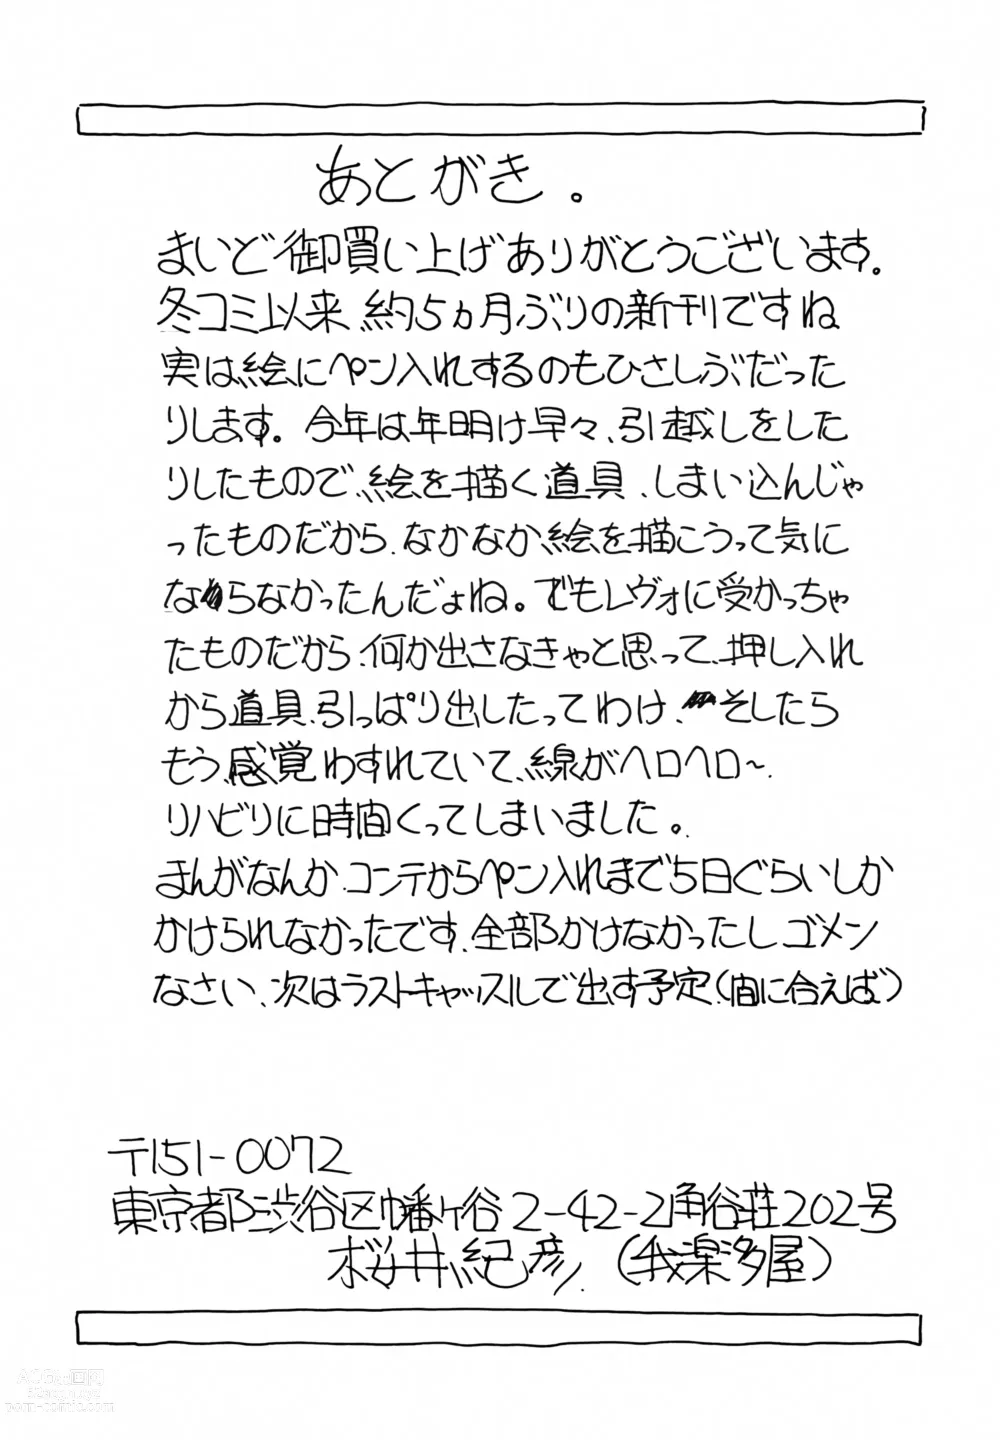 あとがき。
まいど御買い上げありがとうございます。
冬コミ以来、約5ヵ月ぶりの新刊ですね
実は絵にペン入れするのもひさしぶだった
りします。今年は年明け早々、引越しをした
りしたもので、絵を描く道具、しまい込んじゃ
ったものだから、なかなか、絵を描こうって気に
ならなかったんだよね。でもレヴォに受かっちゃ
たものだから、何か出さなきゃと思って、押し入れ
から道具、引っぱり出したってわけ、そしたら
もう、感覚わすれていて、線がヘロヘロ〜.
リハビリに時間くってしまいました。
まんがなんか、コンテからペン入れまで5日ぐらいしか
かけられなかったです、全部かけなかったし ゴメン
なさい、次はラストキャッスルで出す予定、(間に合えば)
〒151-0072
東京都渋谷区幡ヶ谷2-42-2角谷荘202号
桜井紀彦 (我楽多屋)